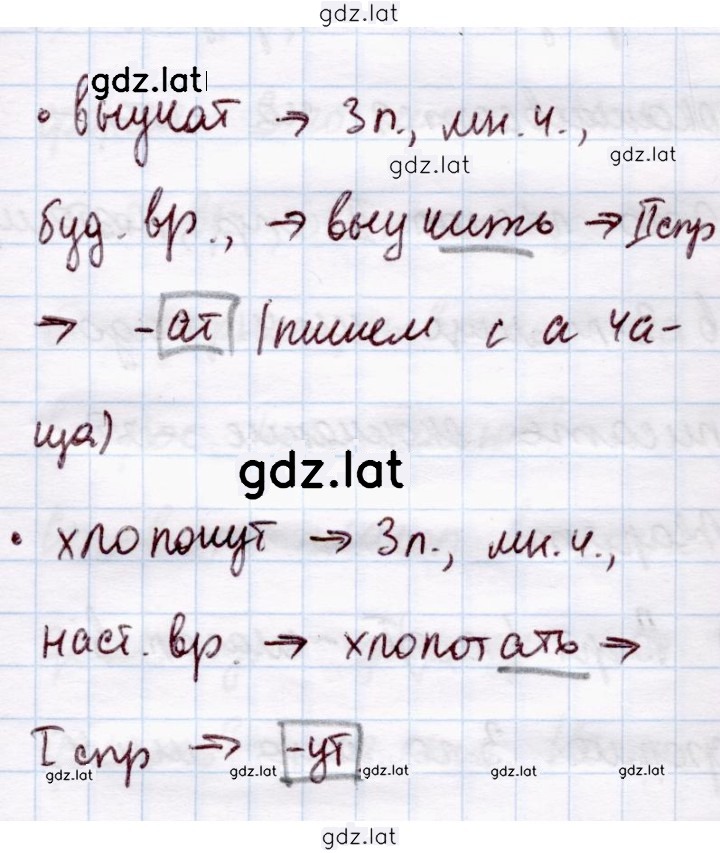 gdz.lat
gdz.lat
• выучат → 3 п., мн. ч.,
gdz.lat gdz.lat
буд. вр., → выучить → II спр
→ -ат (пишем с а ча-
ща)
gdz.lat
• хлопочут → 3 п., мн. ч.,
наст. вр. → хлопотать →
I спр → -ут
gdz.lat gdz.lat gdz.lat gdz.lat gdz.lat
gdz.lat